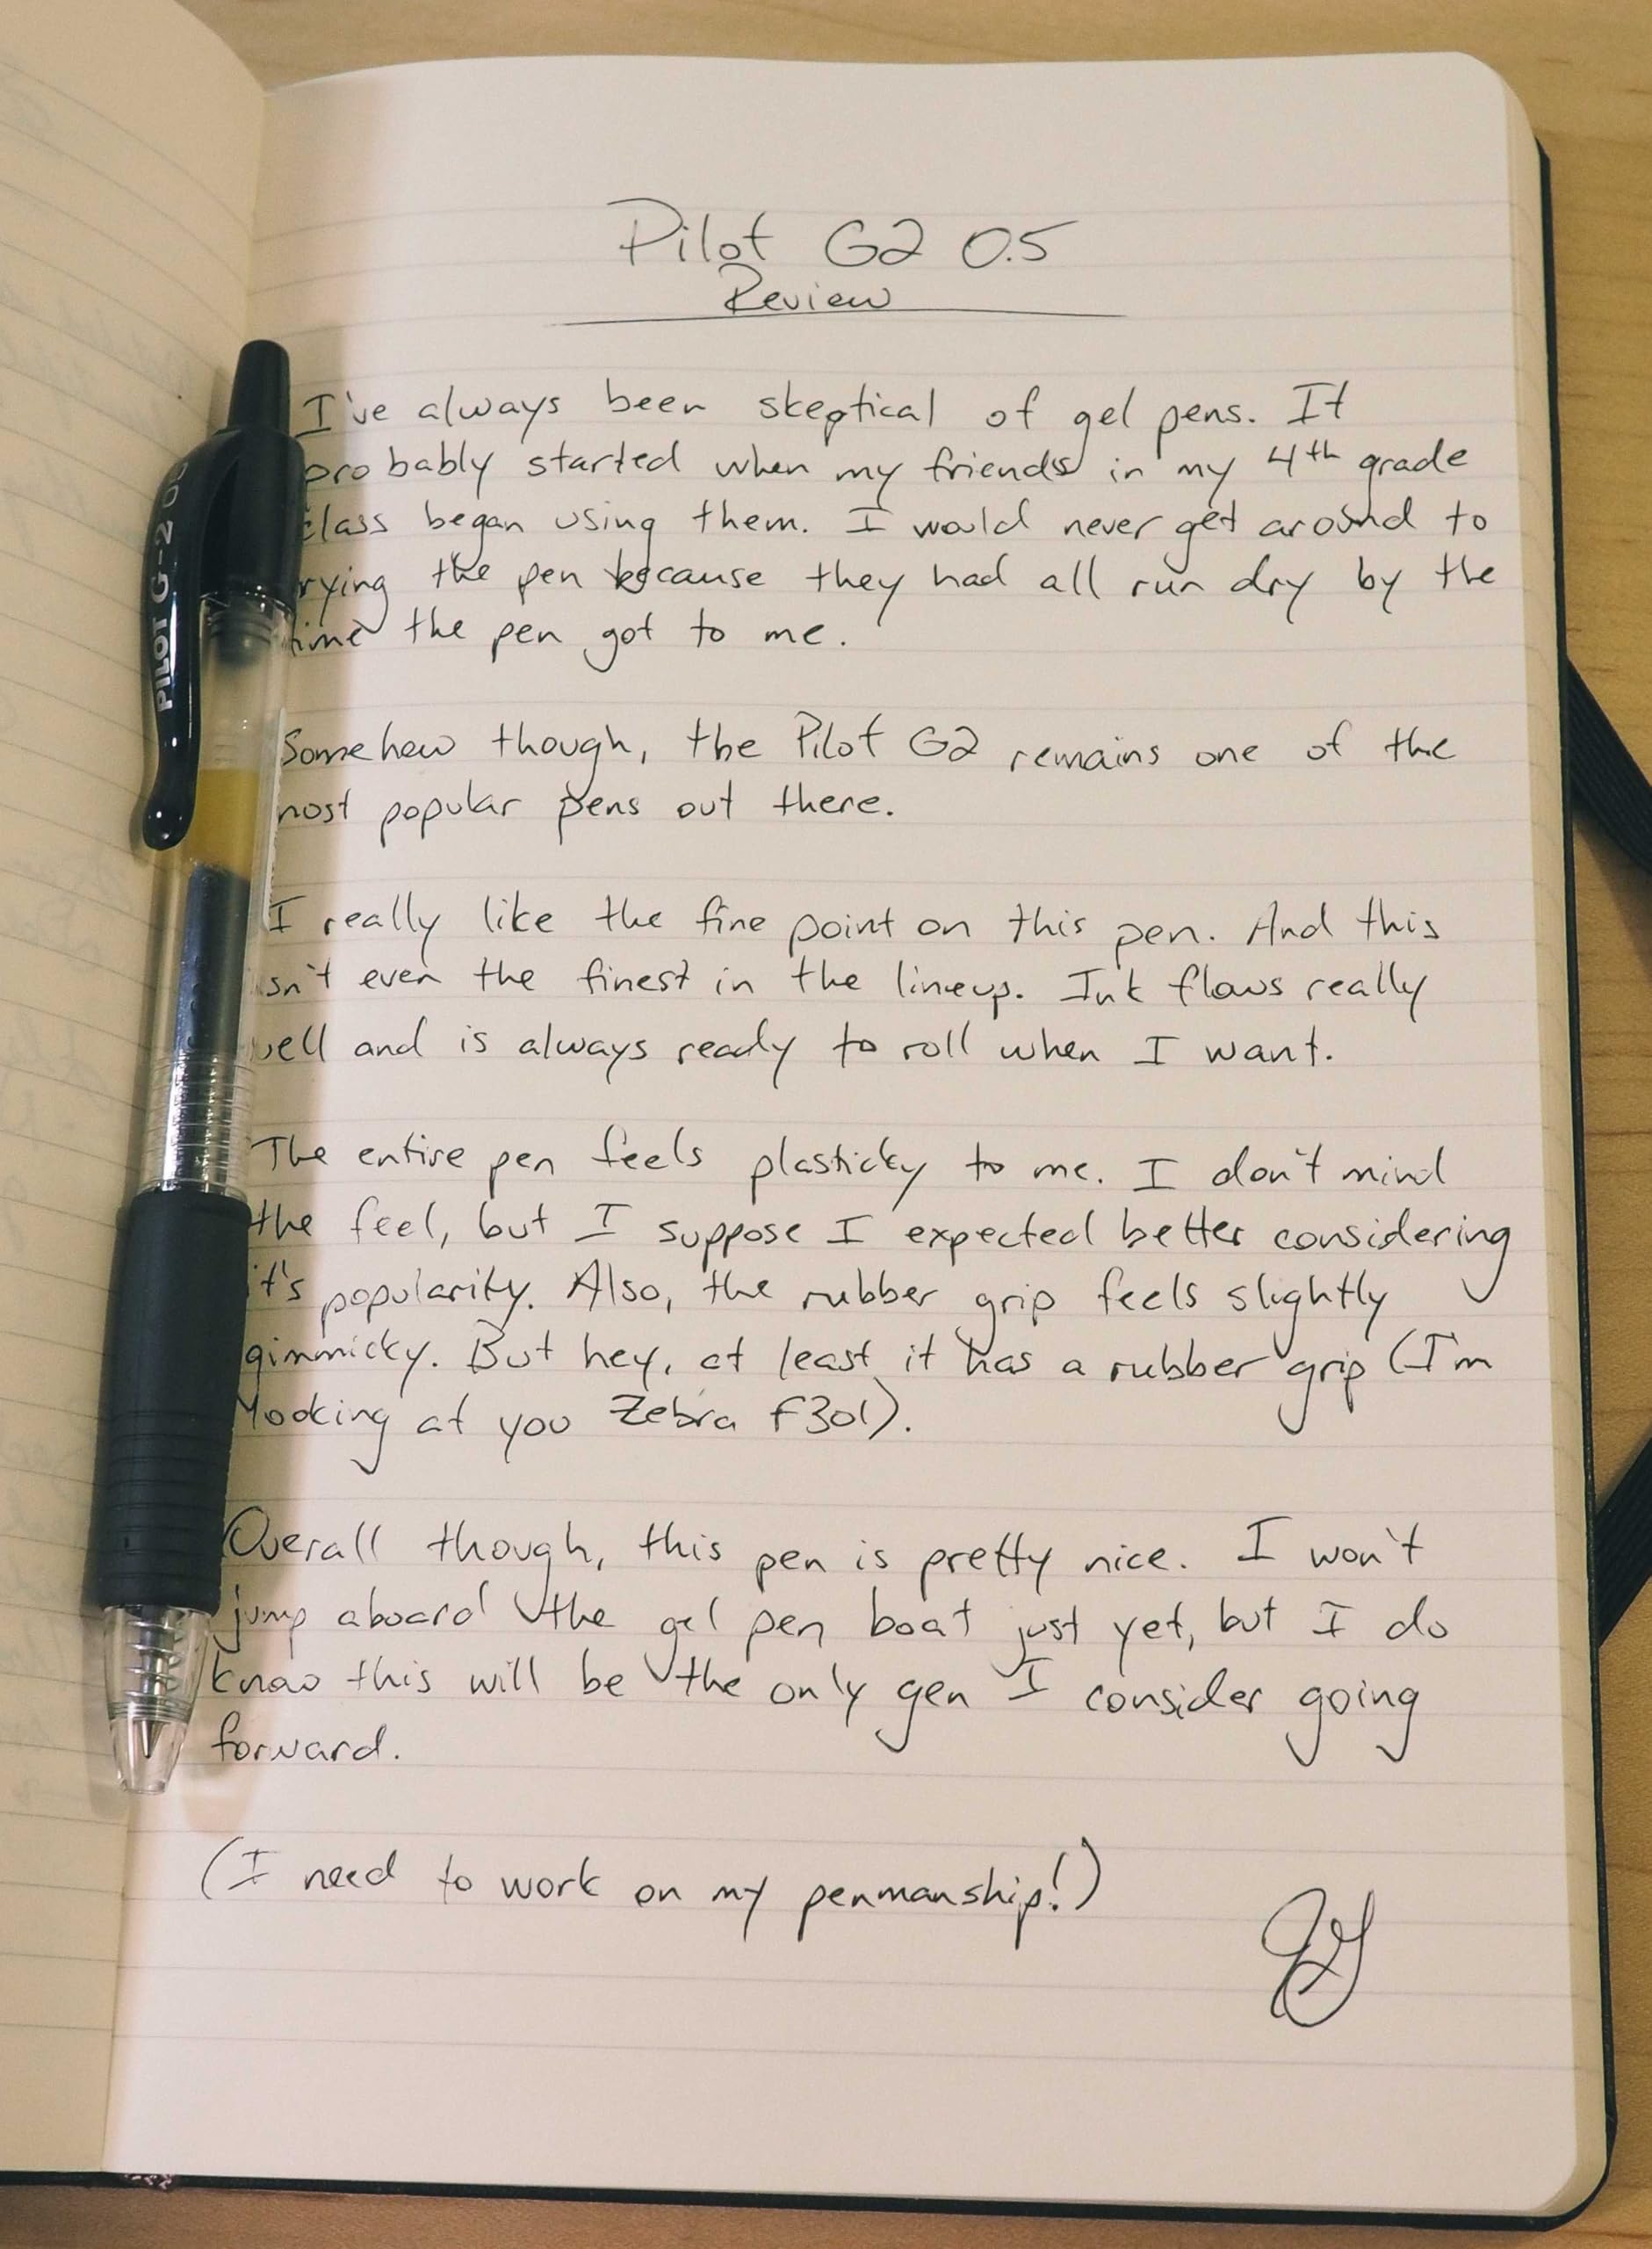 Pilot G2 0.5
Review
I've always been skeptical of gel pens. It
probably started when my friends in my 4th grade
class began using them. I would never get around to
trying the pen because they had all run dry by the
time the pen got to me.
Somehow though, the Pilot G2 remains one of the
most popular pens out there.
I really like the fine point on this pen. And this
isn't even the finest in the lineup. Ink flows really
well and is always ready to roll when I want.
The entire pen feels plasticky to me. I don't mind
the feel, but I suppose I expected better considering
it's popularity. Also, the rubber grip feels slightly
gimmicky. But hey, at least it has a rubber grip (I'm
looking at you Zebra F301).
Overall though, this pen is pretty nice. I won't
jump aboard the gel pen boat just yet, but I do
know this will be the only gen I consider going
forward.
(I need to work on my penmanship!)
PILOT G-2 05